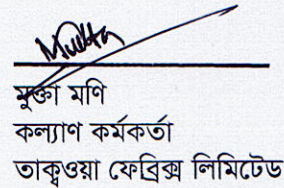 Mukta
মুক্তা মণি
কল্যাণ কর্মকর্তা
তাকওয়া ফেব্রিক্স লিমিটেড